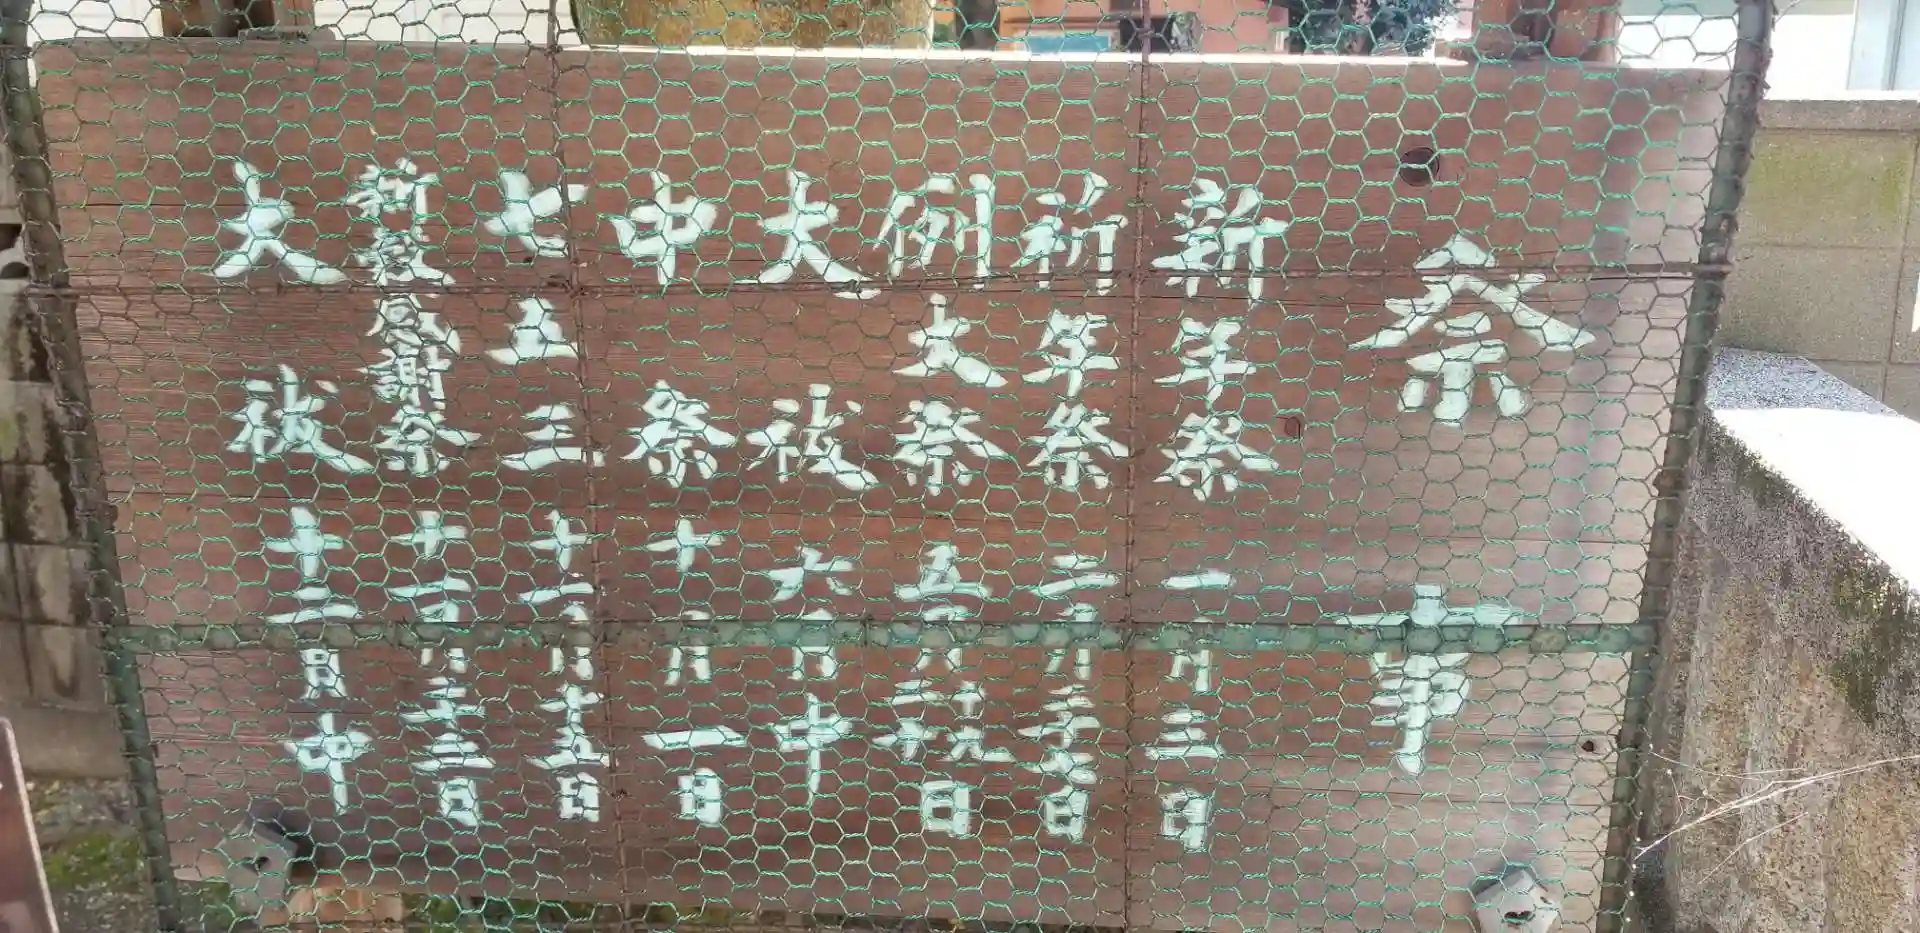 祭事
新年祭 一月三日
祈年祭 二月
例大祭 五月
大祓 六月中
中祭 十月一日
七五三 十一月十五日
新穀感謝祭 十一月二十三日
大祓 十二月中